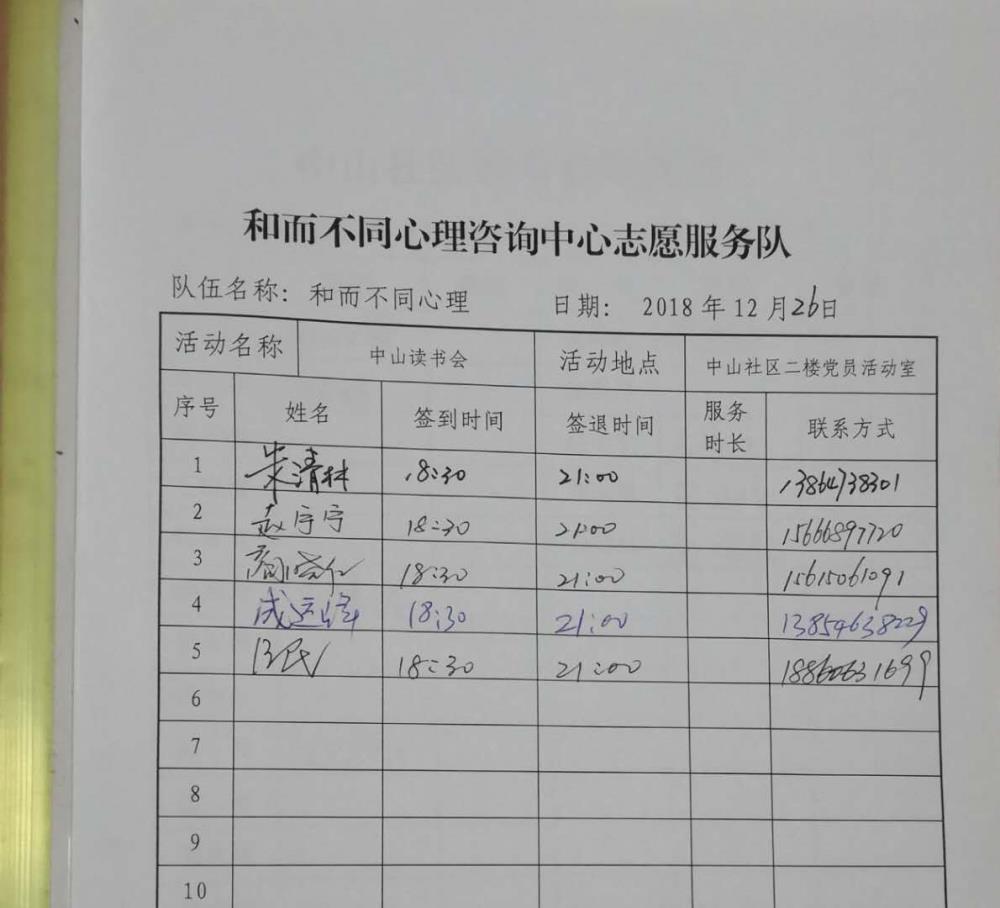 和而不同心理咨询中心志愿服务队
队伍名称：和而不同心理 日期： 2018年12月26日
活动名称 中山读书会 活动地点 中山社区二楼党员活动室
序号 姓名 签到时间 签退时间 服务时长 联系方式
1 朱清林 18:30 21:00 13864738301
2 赵宁宁 18:30 21:00 15666897720
3 18:30 21:00 15615061091
4 成运峰 18:30 21:00 13854638229
5 民 18:30 21:00 18860631699
6
7
8
9
10